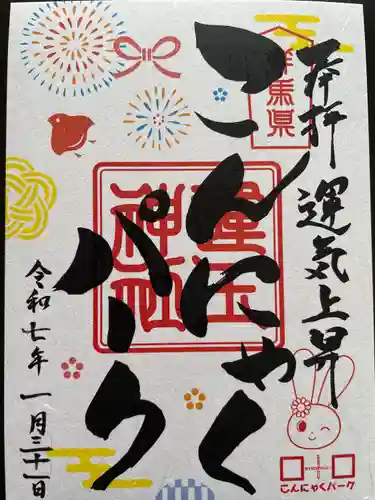 奉拝 運気上昇
群馬県
こんにゃく
パーク
神社
令和七年 一月三十一日
こんにゃくパーク